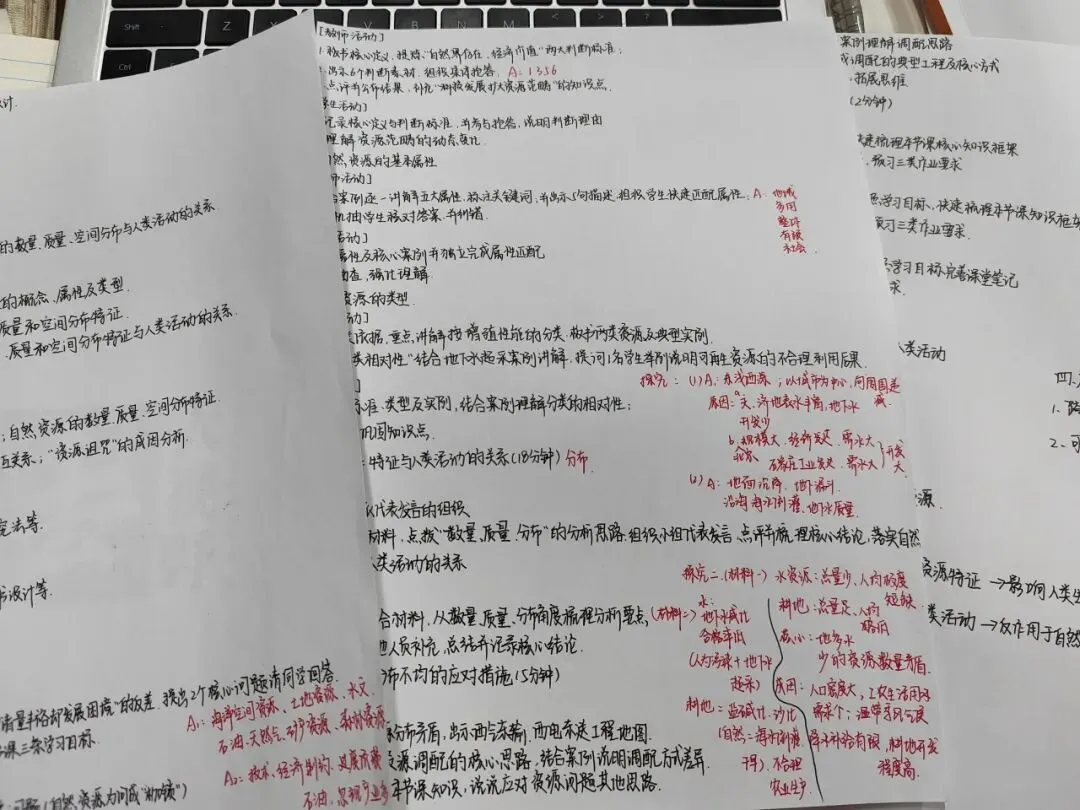 Shift
Z
X
C
V
B
N
M
Ctrl
计.
的数量、质量、空间分布与人类活动的关系
的概念、属性及类型.
质量和空间分布特征.
质量和空间分布特征与人类活动的关系.
; 自然资源的数量、质量、空间分布特征.
互关系; "资源诅咒"的成因分析.
究法等.
书设计等.
储量丰裕却发展困境"的反差, 提出2个核心问题请同学回答.
A₁: 海洋空间资源、土地资源、水文
石油、天然气、矿产资源、森林资源
课三条学习目标.
A₂: 技术、经济制约、发展
石油、忽视
问题(自然资源为何成"枷锁")
[教师活动]
1. 板书核心定义, 提炼"自然界存在、经济价值"两大判断标准;
出示6个判断素材, 组织集体抢答. A: 1356
点评并公布结果, 引出"科技发展扩大资源范畴"的知识点.
学生活动]
记录核心定义与判断标准, 并参与抢答, 说明判断理由
理解资源范畴的动态变化
自然资源的基本属性
师活动]
合案例逐一讲解五大属性, 标注关键词, 并出示5句描述, 组织学生快速匹配属性. A: 地域
多用
整体
有限
社会.
机抽学生核对答案, 并纠错.
活动]
属性及核心案例并独立完成属性匹配
查, 强化理解
资源的类型
动]
类依据, 重点讲解按增殖性能的分类, 板书两类资源及典型实例.
类相对性"结合地下水超采案例讲解, 提问1名学生举例说明可再生资源的不合理利用后果.
]
标准、类型及实例, 结合案例理解分类的相对性;
巩固知识点.
特征与人类活动的关系(18分钟) 分布.
探究一: (1) A: 东浅西深; 以城市为中心, 向周围递减
原因: a 天、济地表水丰富, 地下水
开发少
b. 规模大、经济发达、需水大
北京
石家庄工业发达、需水大
开发大
(2) A: 地面沉降、地下漏斗
沿海海水倒灌、地下水质量.
代表发言的组织
材料, 点拨"数量、质量、分布"的分析思路, 组织小组代表发言, 点评并梳理核心结论, 落实自然
人类活动的关系
探究二. (材料一) 水资源: 总量少、人均极度
短缺
耕地: 总量足、人均
略低
核心: 地多水
少的资源数量矛盾.
原因: 人口密度大、工农生活用水
需求大; 温带季风气候
降水补给有限, 耕地开发
程度高.
合材料, 从数量、质量、分布角度梳理分析要点, (材料二)
水:
地下水咸化
合格率低
(人为污染+地下水
超采)
耕地: 盐碱化、沙化
(自然: 海水倒灌
干旱). 不合理
农业生产
他人员补充, 总结并记录核心结论.
布不均的应对措施(5分钟)
分布矛盾, 出示西气东输, 西电东送工程地图.
资源调配的核心思路, 结合案例说明调配方式差异.
本节课知识, 说说应对资源问题其他思路.
案例理解调配思路
或调配的典型工程及核心方式
拓展思维
(2分钟)
快速梳理本节课核心知识框架
预习三类作业要求
照学习目标, 快速梳理本节课知识框架
预习三类作业要求.
学习目标完善课堂笔记
求.
人类活动
四.
1.
2.
源.
资源特征 → 影响人类生
类活动 → 反作用于自然